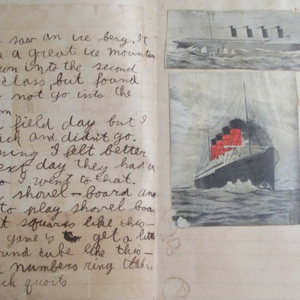 saw an ice berg. It
a great ice mountain
down into the second
class, but found
not go into the
field day but I
sick and didn't go.
I felt better
next day they had a
I went to that.
shovel-board and
to play shovel boar
squares like this-
game is to get a litt
round cube like this-
numbers ring toss is
quoits